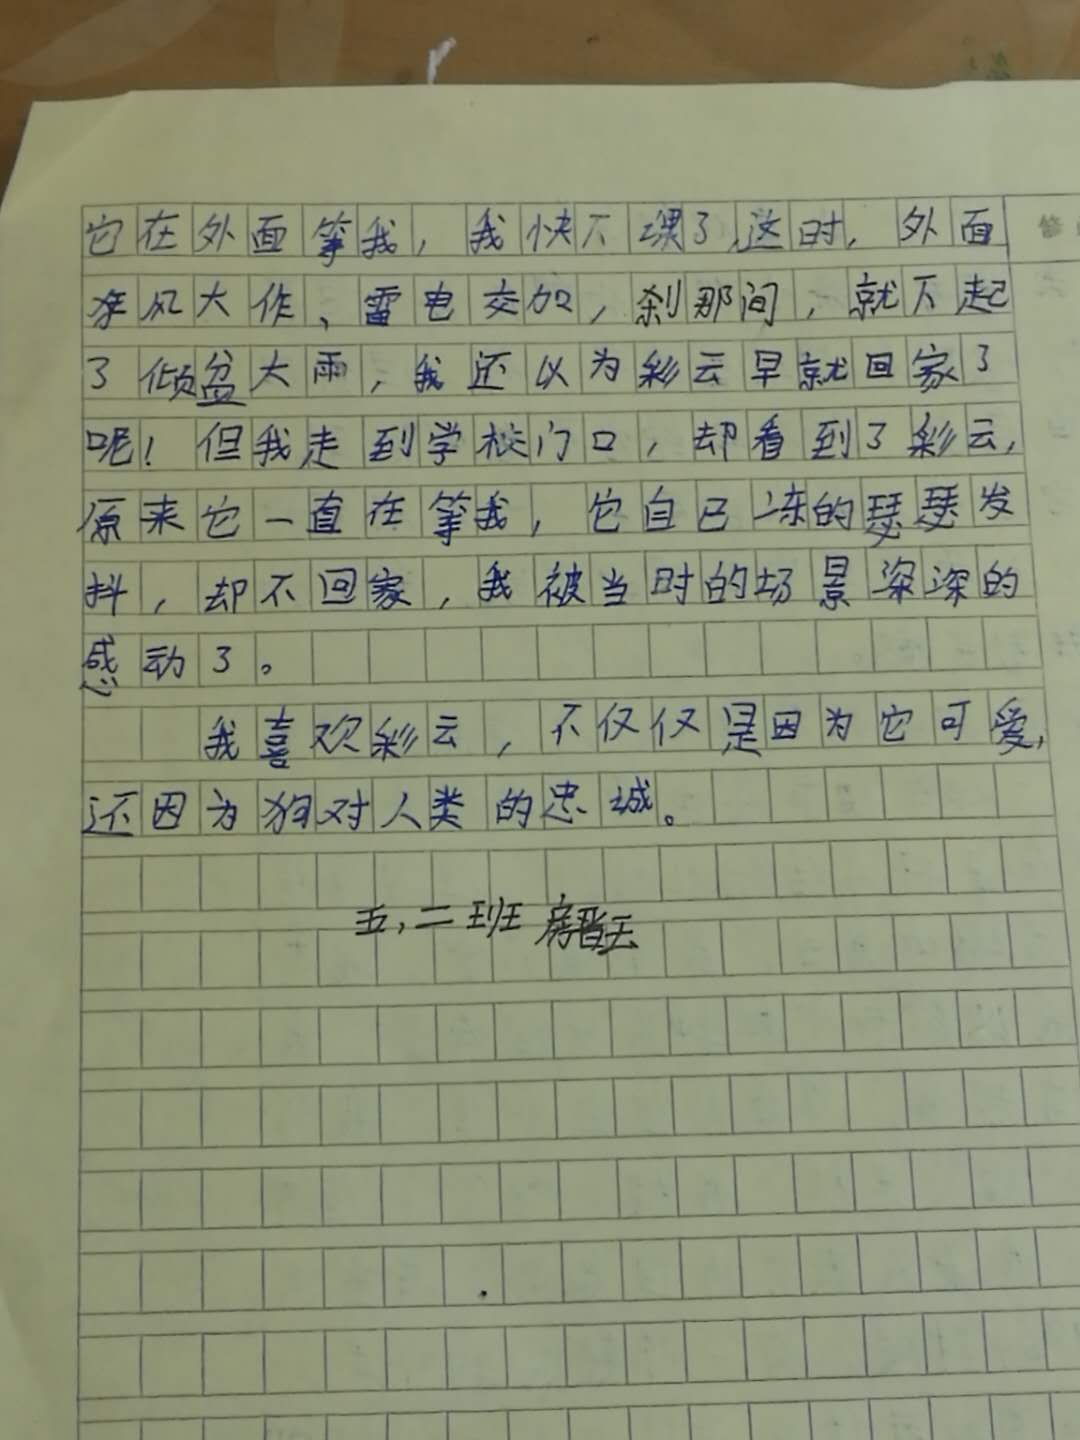 它在外面等我，我快下课了，这时，外面
狂风大作、雷电交加，刹那间，就下起
了倾盆大雨，我还以为彩云早就回家了
呢！但我走到学校门口，却看到了彩云，
原来它一直在等我，它自已冻的瑟瑟发
抖，却不回家，我被当时的场景深深的
感动了。
我喜欢彩云，不仅仅是因为它可爱，
还因为狗对人类的忠诚。
五，二班